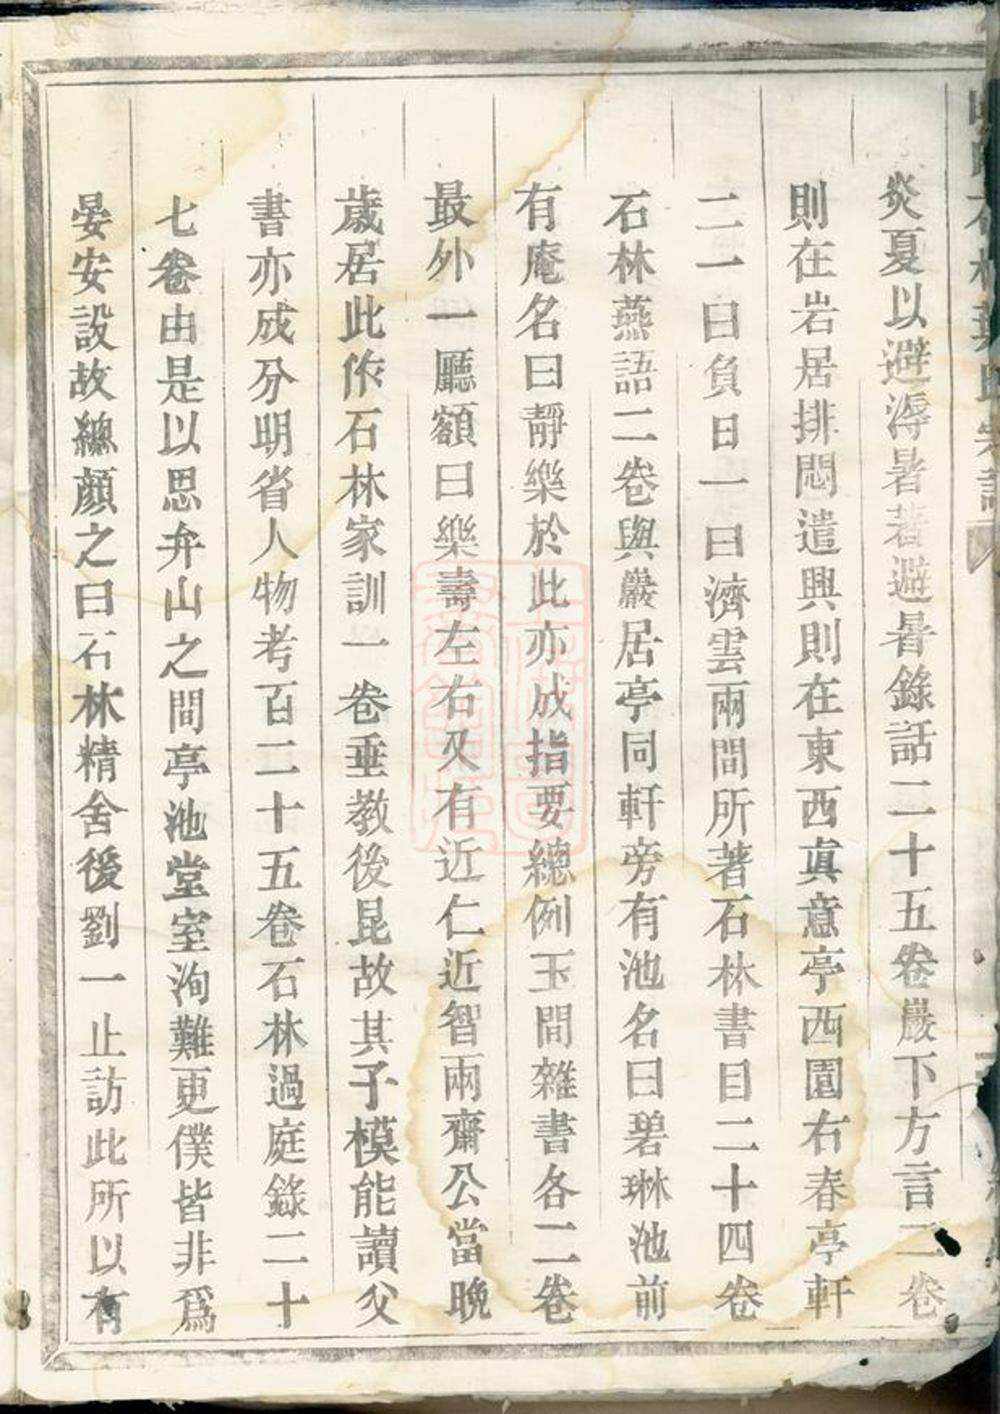 炎夏以避溽暑著避暑錄話二十五卷巖下方言二卷
則在岩居排悶遣興則在東西眞意亭西園右春亭軒
二一曰負日一曰濟雲兩間所著石林書目二十四卷
石林燕語二卷與巖居亭同軒旁有池名曰碧琳池前
有庵名曰靜樂於此亦成指要總例玉間雜書各二卷
最外一廳額曰樂壽左右又有近仁近智兩齋公當晚
歲居此作石林家訓一卷垂教後昆故其子模能讀父
書亦成分明省人物考百二十五卷石林過庭錄二十
七卷由是以思弁山之間亭池堂室洵難更僕皆非爲
晏安設故總顏之曰石林精舍後劉一止訪此所以有